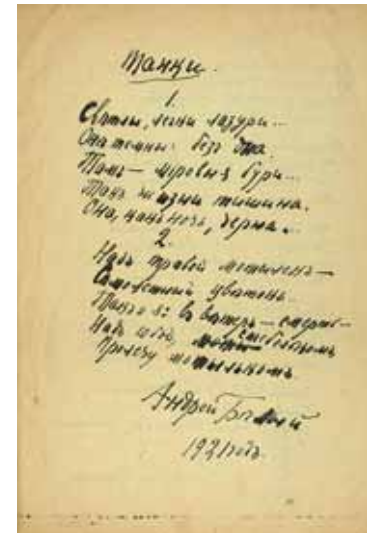 Танки.
1.
Свѣтлы, легки лазури...
Онѣ темны: безъ дна.
Тамъ — мировыя бури...
Такъ жизни тишина.
Она, какъ ночь, черна...
2.
Надъ травой мотылекъ —
Самолетный цвѣтокъ..
Такъ и я: въ вѣтеръ — смерть —
Надъ собой, стебелькомъ
Пролечу мотылькомъ.
Андрей Бѣлый
1921 годъ.